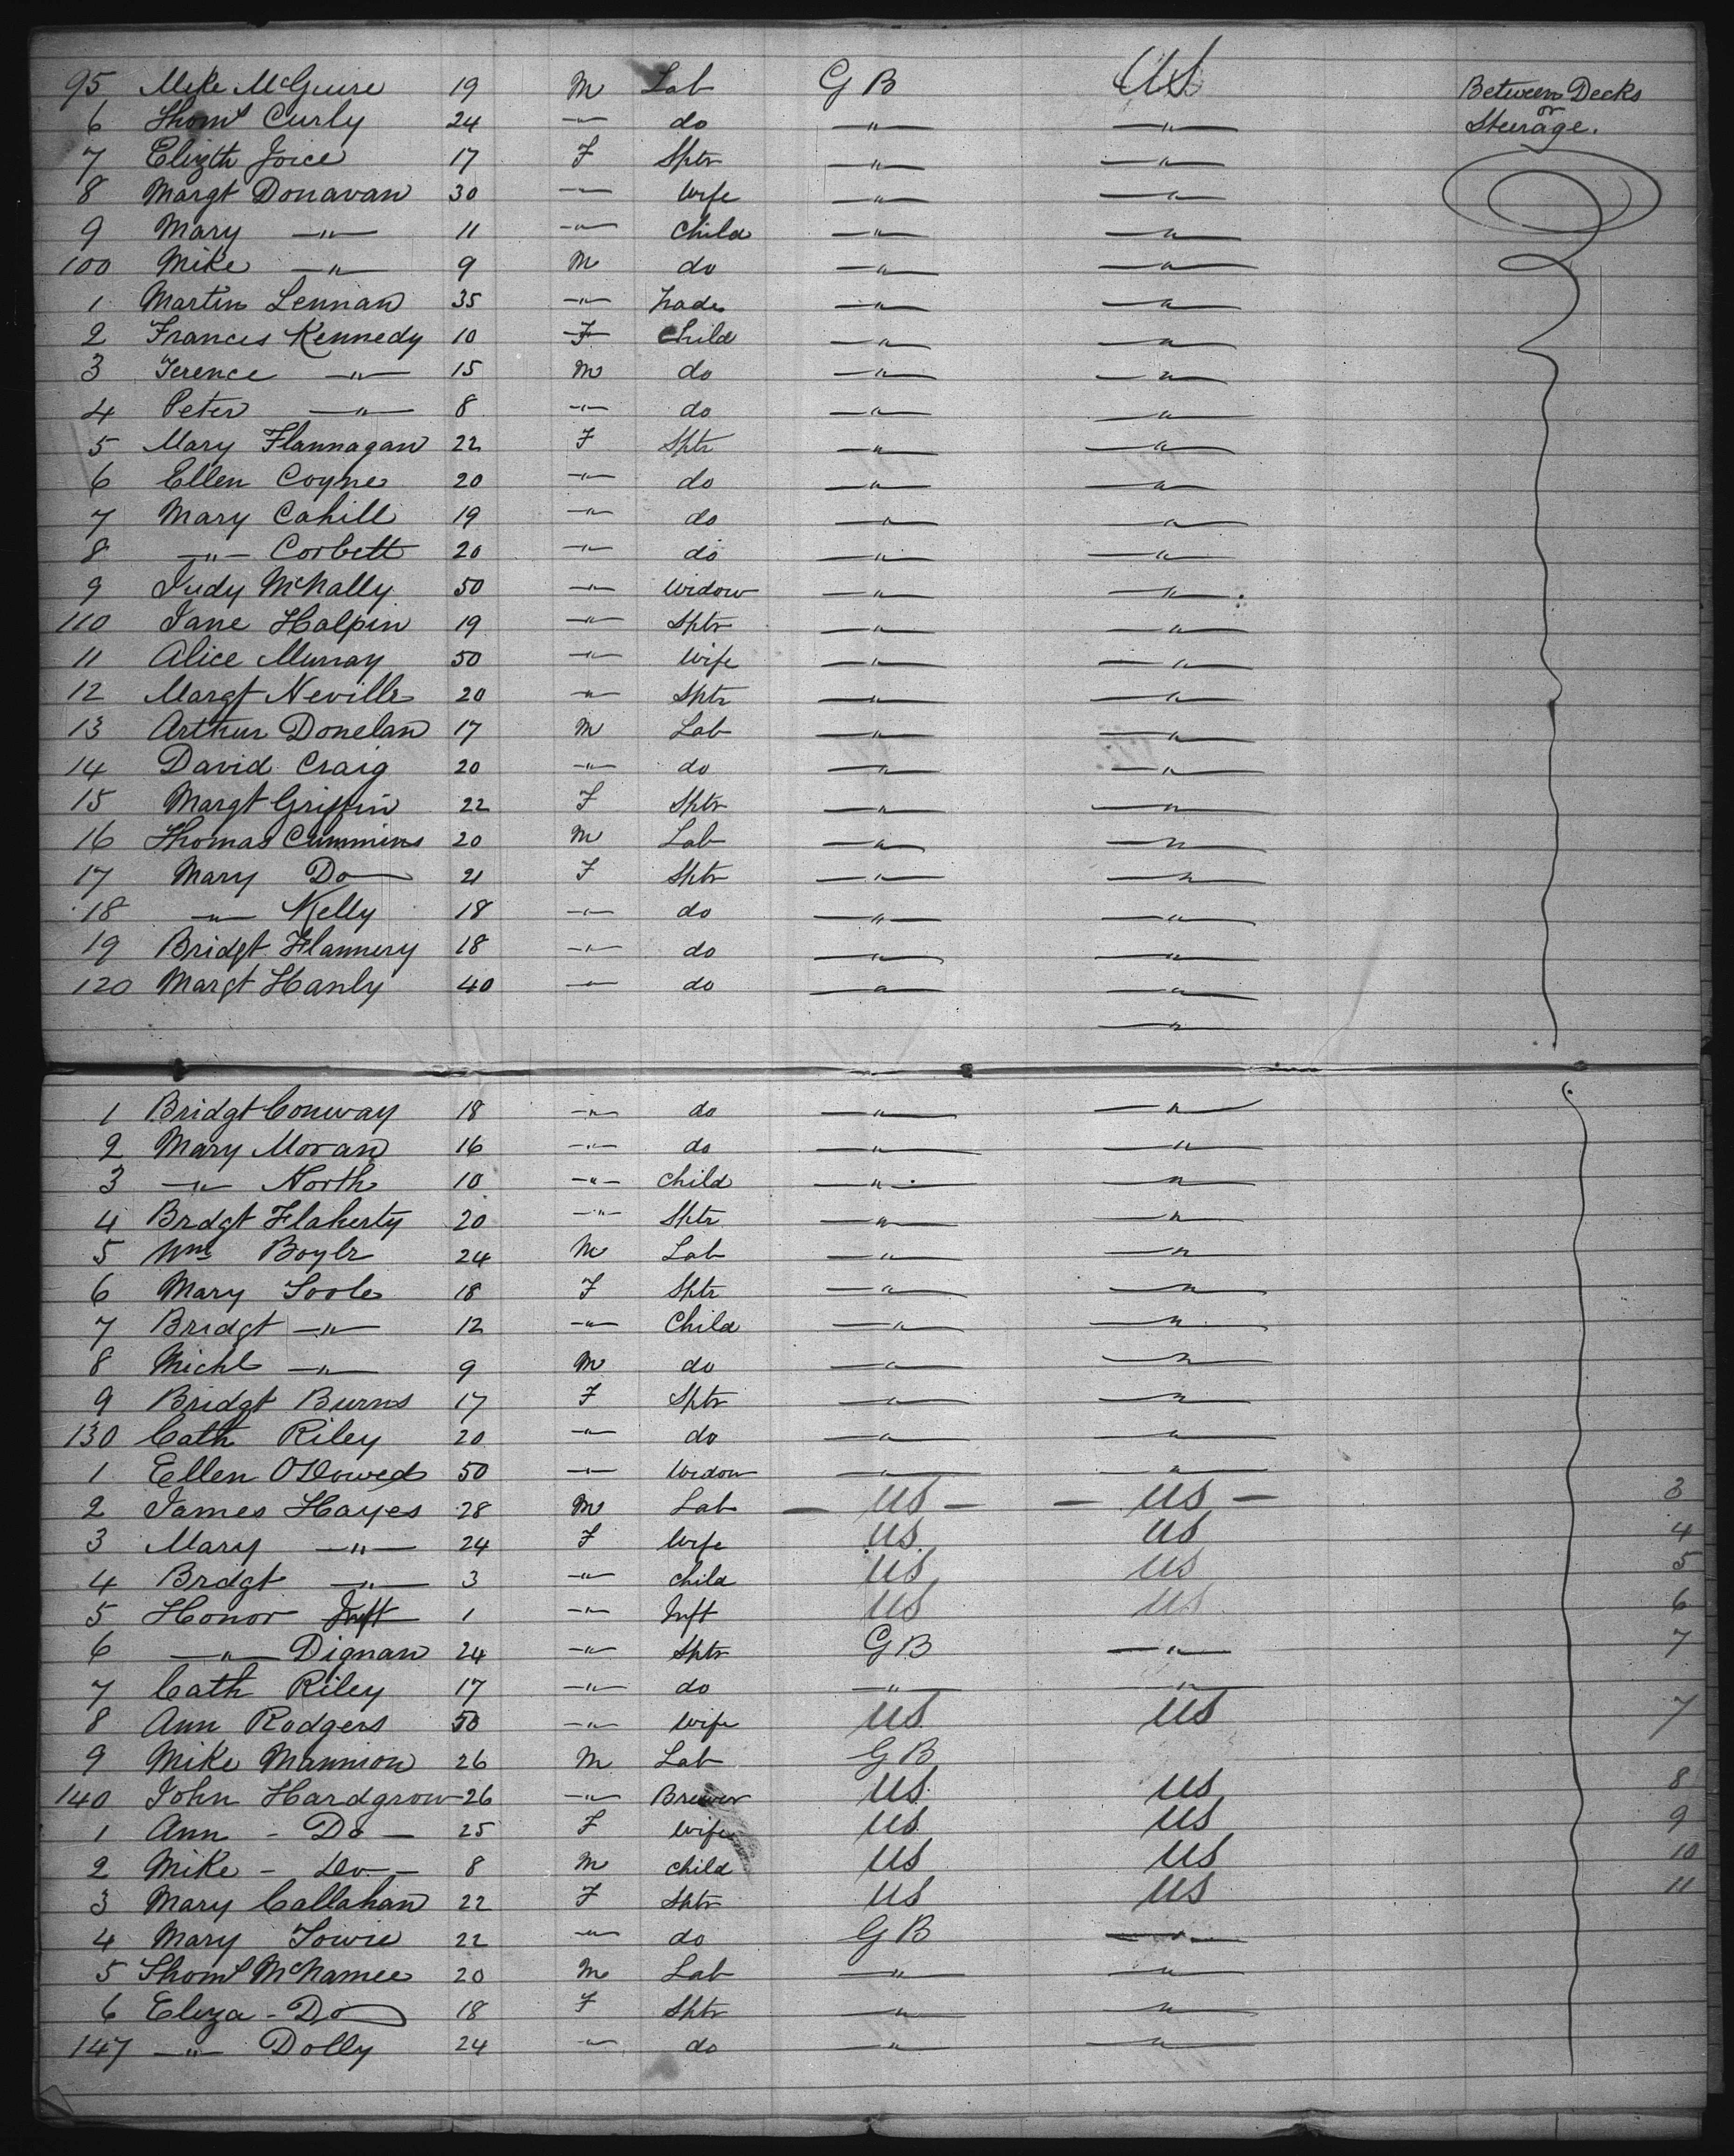 95 Mike McGuire 19 M Lab G B US Between Decks
or
6 Thoms Curly 24 —"— do —"— —"— Steerage.
7 Elizth Joice 17 F Sptr —"— —"—
8 Margt Donavan 30 —"— Wife —"— —"—
9 Mary —"— 11 —"— Child —"— —"—
100 Mike —"— 9 M do —"— —"—
1 Martin Lennan 35 —"— —"— —"—
2 Frances Kennedy 10 F Child —"— —"—
3 Terence —"— 15 M do —"— —"—
4 Peter —"— 8 —"— do —"— —"—
5 Mary Flannagan 22 F Sptr —"— —"—
6 Ellen Coyne 20 —"— do —"— —"—
7 Mary Cahill 19 —"— do —"— —"—
8 —"— Corbett 20 —"— do —"— —"—
9 Judy McNally 50 —"— Widow —"— —"—
110 Jane Halpin 19 —"— Sptr —"— —"—
11 Alice Murray 50 —"— Wife —"— —"—
12 Margt Neville 20 —"— Sptr —"— —"—
13 Arthur Donelan 17 M Lab —"— —"—
14 David Craig 20 —"— do —"— —"—
15 Margt Griffin 22 F Sptr —"— —"—
16 Thomas Cummins 20 M Lab —"— —"—
17 Mary Do 21 F Sptr —"— —"—
18 —"— Kelly 18 —"— do —"— —"—
19 Bridgt Flannery 18 —"— do —"— —"—
120 Margt Hanly 40 —"— do —"— —"—
—"—
1 Bridgt Conway 18 —"— do —"— —"—
2 Mary Moran 16 —"— do —"— —"—
3 —"— North 10 —"— Child —"— —"—
4 Brdgt Flaherty 20 —"— Sptr —"— —"—
5 Wm Boyle 24 M Lab —"— —"—
6 Mary Toole 18 F Sptr —"— —"—
7 Brdgt —"— 12 —"— Child —"— —"—
8 Michl —"— 9 M do —"— —"—
9 Bridgt Burns 17 F Sptr —"— —"—
130 Cath Riley 20 —"— do —"— —"—
1 Ellen O'Dowed 50 —"— Widow —"— —"—
2 James Hayes 28 M Lab — US — — US — 3
3 Mary —"— 24 F Wife US US 4
4 Brdgt —"— 3 —"— child US US 5
5 Honor Inft 1 —"— Inft US US 6
6 —"— Dignan 24 —"— Sptr G B —"— 7
7 Cath Riley 17 —"— do —"— —"—
8 Ann Rodgers 50 —"— Wife US US 7
9 Mike Mannion 26 M Lab G B
140 John Hardgrow 26 —"— Brewer US US 8
1 Ann - Do — 25 F Wife US US 9
2 Mike - Do - 8 M child US US 10
3 Mary Callahan 22 F Sptr US US 11
4 Mary Towie 22 —"— do G B —"—
5 Thoms McNamee 20 M Lab —"— —"—
6 Eliza - Do 18 F Sptr —"— —"—
147 —"— Dolly 24 —"— do —"— —"—